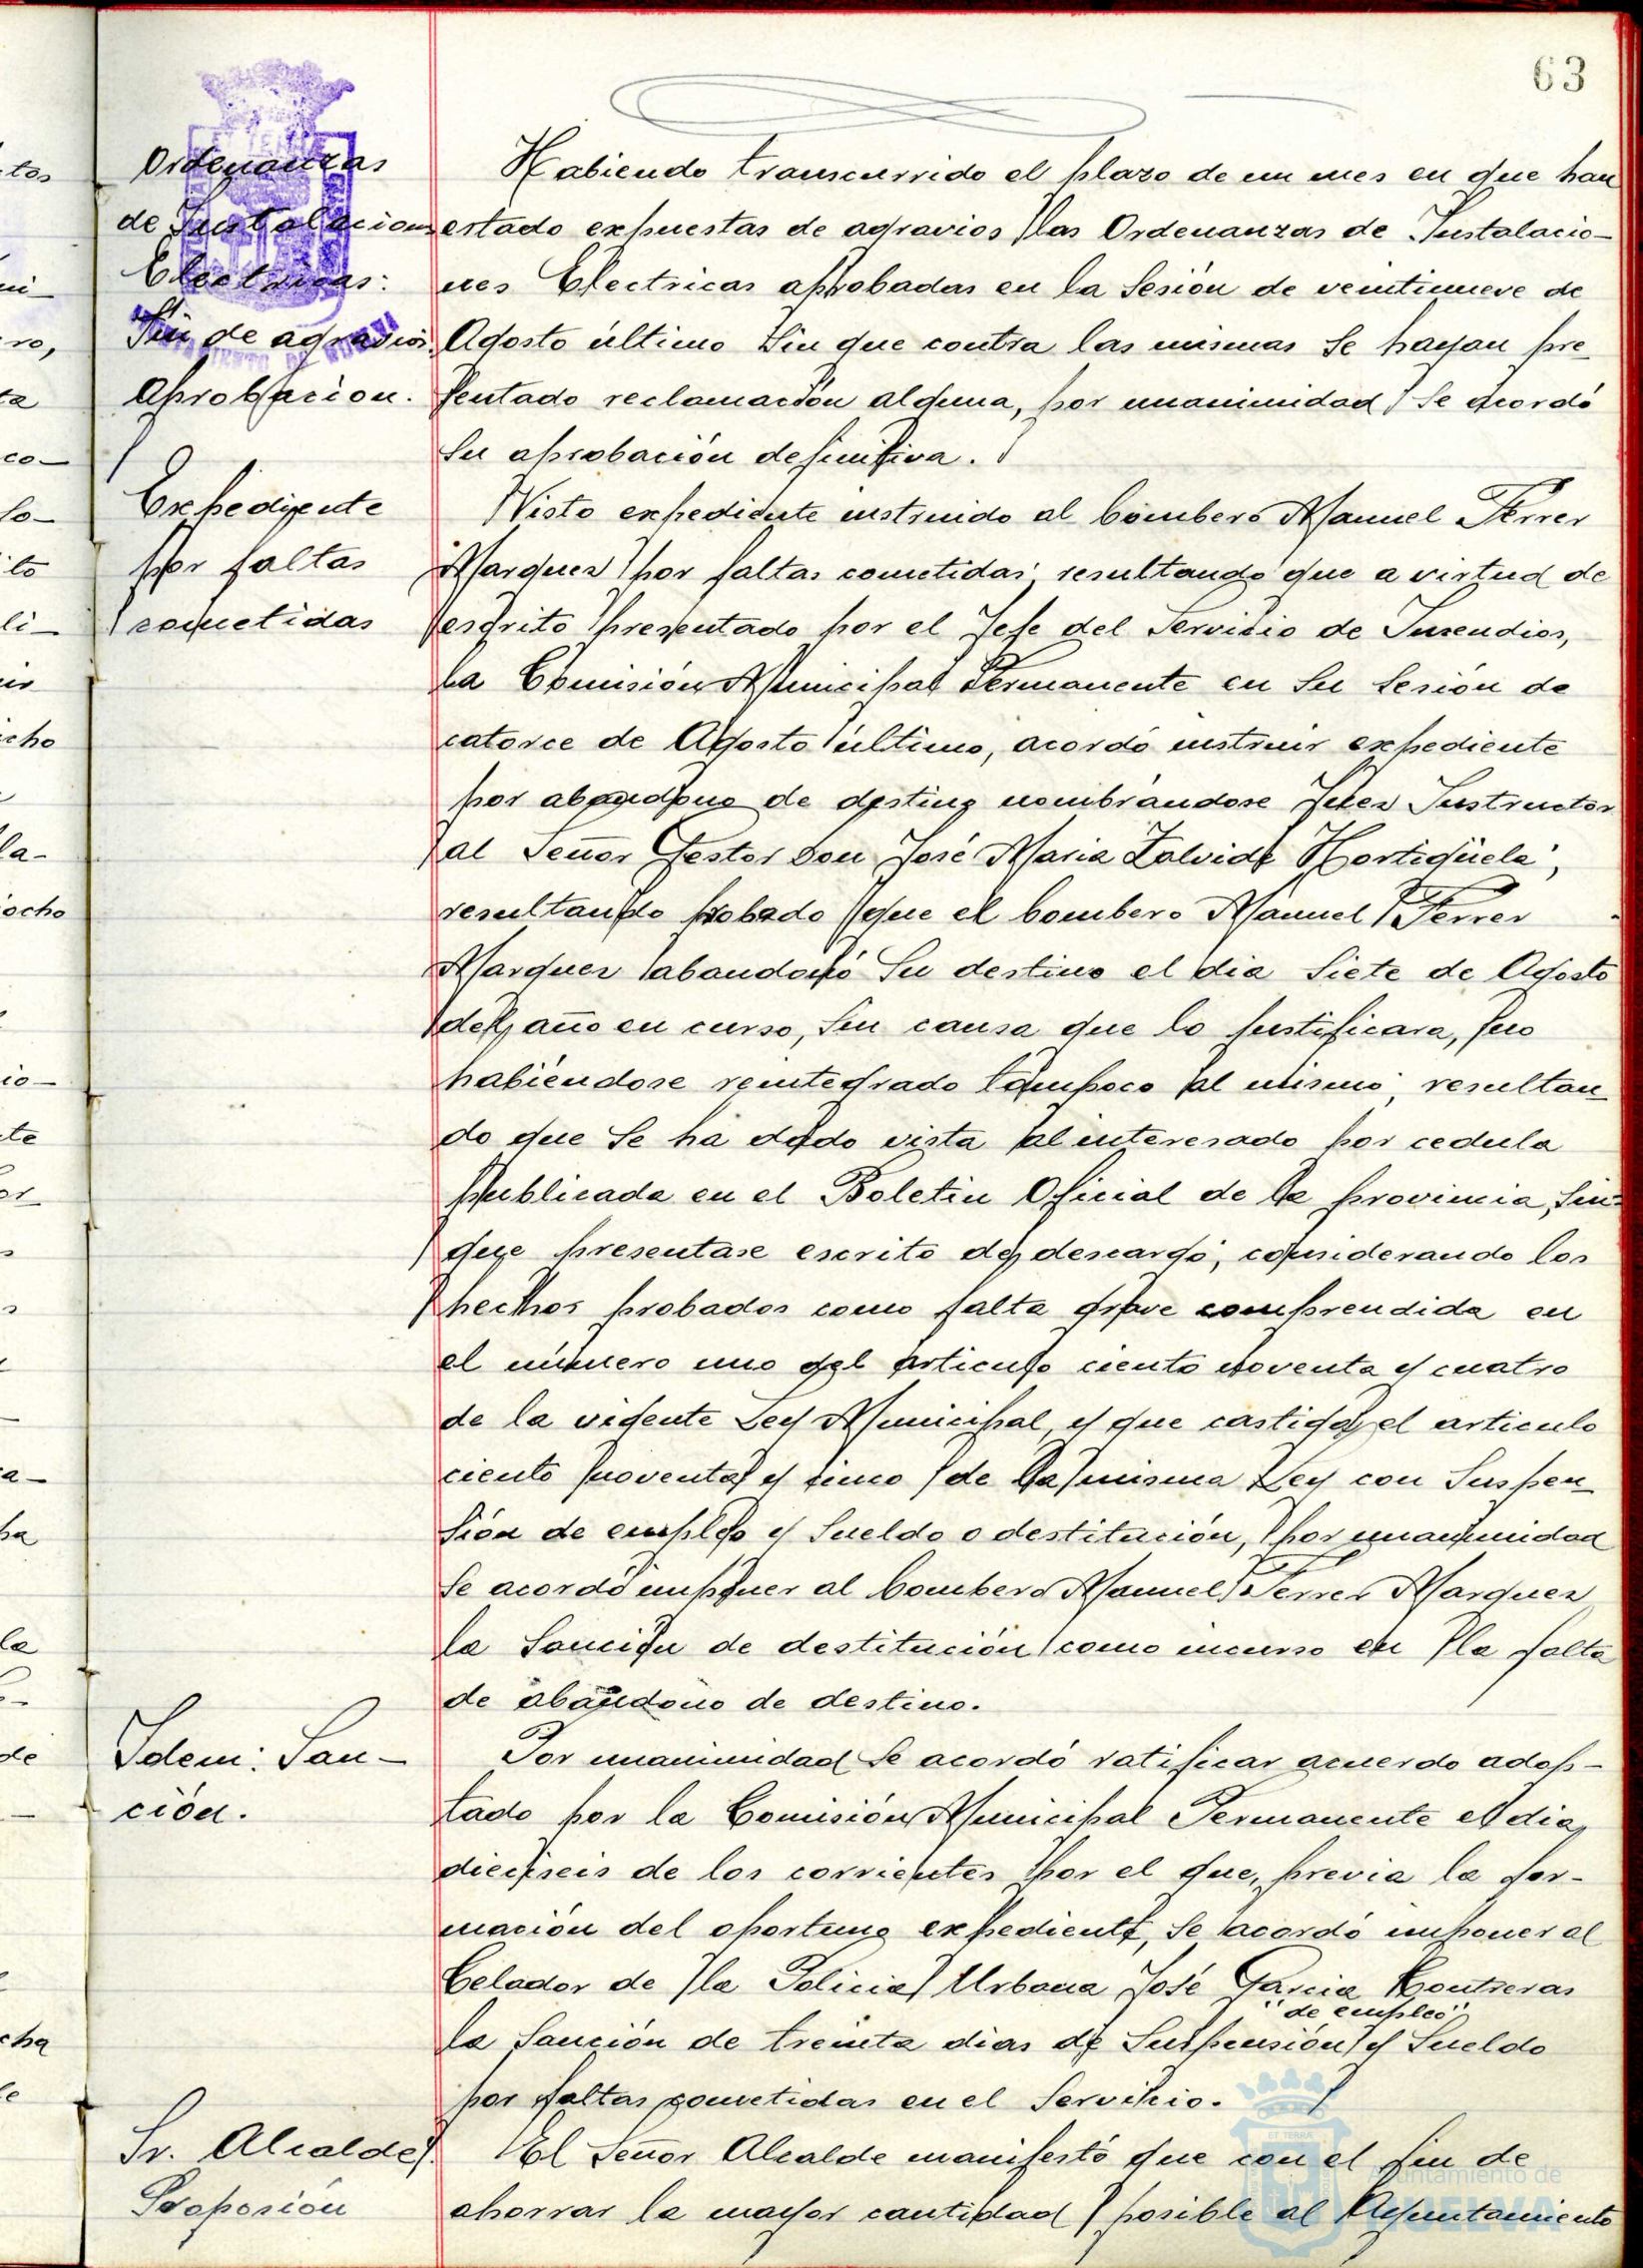 63
Ordenanzas
de Instalaciones
Electricas:
Fin de agravios.
Aprobacion.
Habiendo transcurrido el plazo de un mes en que han
estado expuestas de agravios las Ordenanzas de Instalacio-
nes Electricas aprobadas en la Sesión de veintinueve de
Agosto último sin que contra las mismas se hayan pre-
sentado reclamación alguna, por unanimidad se acordó
su aprobación definitiva.
Expediente
por faltas
cometidas
Visto expediente instruido al bombero Manuel Ferrer
Marquez por faltas cometidas; resultando que a virtud de
escrito presentado por el Jefe del Servicio de Incendios,
la Comisión Municipal Permanente en su Sesión de
catorce de Agosto último, acordó instruir expediente
por abandono de destino nombrándose Juez Instructor
al Señor Gestor Don José Maria Zalvide Hortigüela;
resultando probado que el bombero Manuel Ferrer
Marquez abandonó su destino el dia siete de Agosto
del año en curso, sin causa que lo justificara, no
habiéndose reintegrado tampoco al mismo; resultan-
do que se ha dado vista al interesado por cedula
publicada en el Boletin Oficial de la provincia, sin-
que presentase escrito de descargo; considerando los
hechos probados como falta grave comprendida en
el número uno del articulo ciento noventa y cuatro
de la vigente Ley Municipal, y que castiga el articulo
ciento noventa y cinco de la misma Ley con Suspen-
sión de empleo y sueldo o destitución, por unanimidad
se acordó imponer al bombero Manuel Ferrer Marquez
la Sanción de destitución como incurso en la falta
de abandono de destino.
Idem: San-
ción.
Por unanimidad se acordó ratificar acuerdo adop-
tado por la Comisión Municipal Permanente el dia
dieciseis de los corrientes por el que, previa la for-
mación del oportuno expediente, se acordó imponer al
Celador de la Policia Urbana José Garcia Contreras
"de empleo"
la Sanción de treinta dias de Suspensión y Sueldo
por faltas cometidas en el Servicio.
Sr. Alcalde.
Proposión
El Señor Alcalde manifestó que con el fin de
ahorrar la mayor cantidad posible al Ayuntamiento
Ayuntamiento de
HUELVA